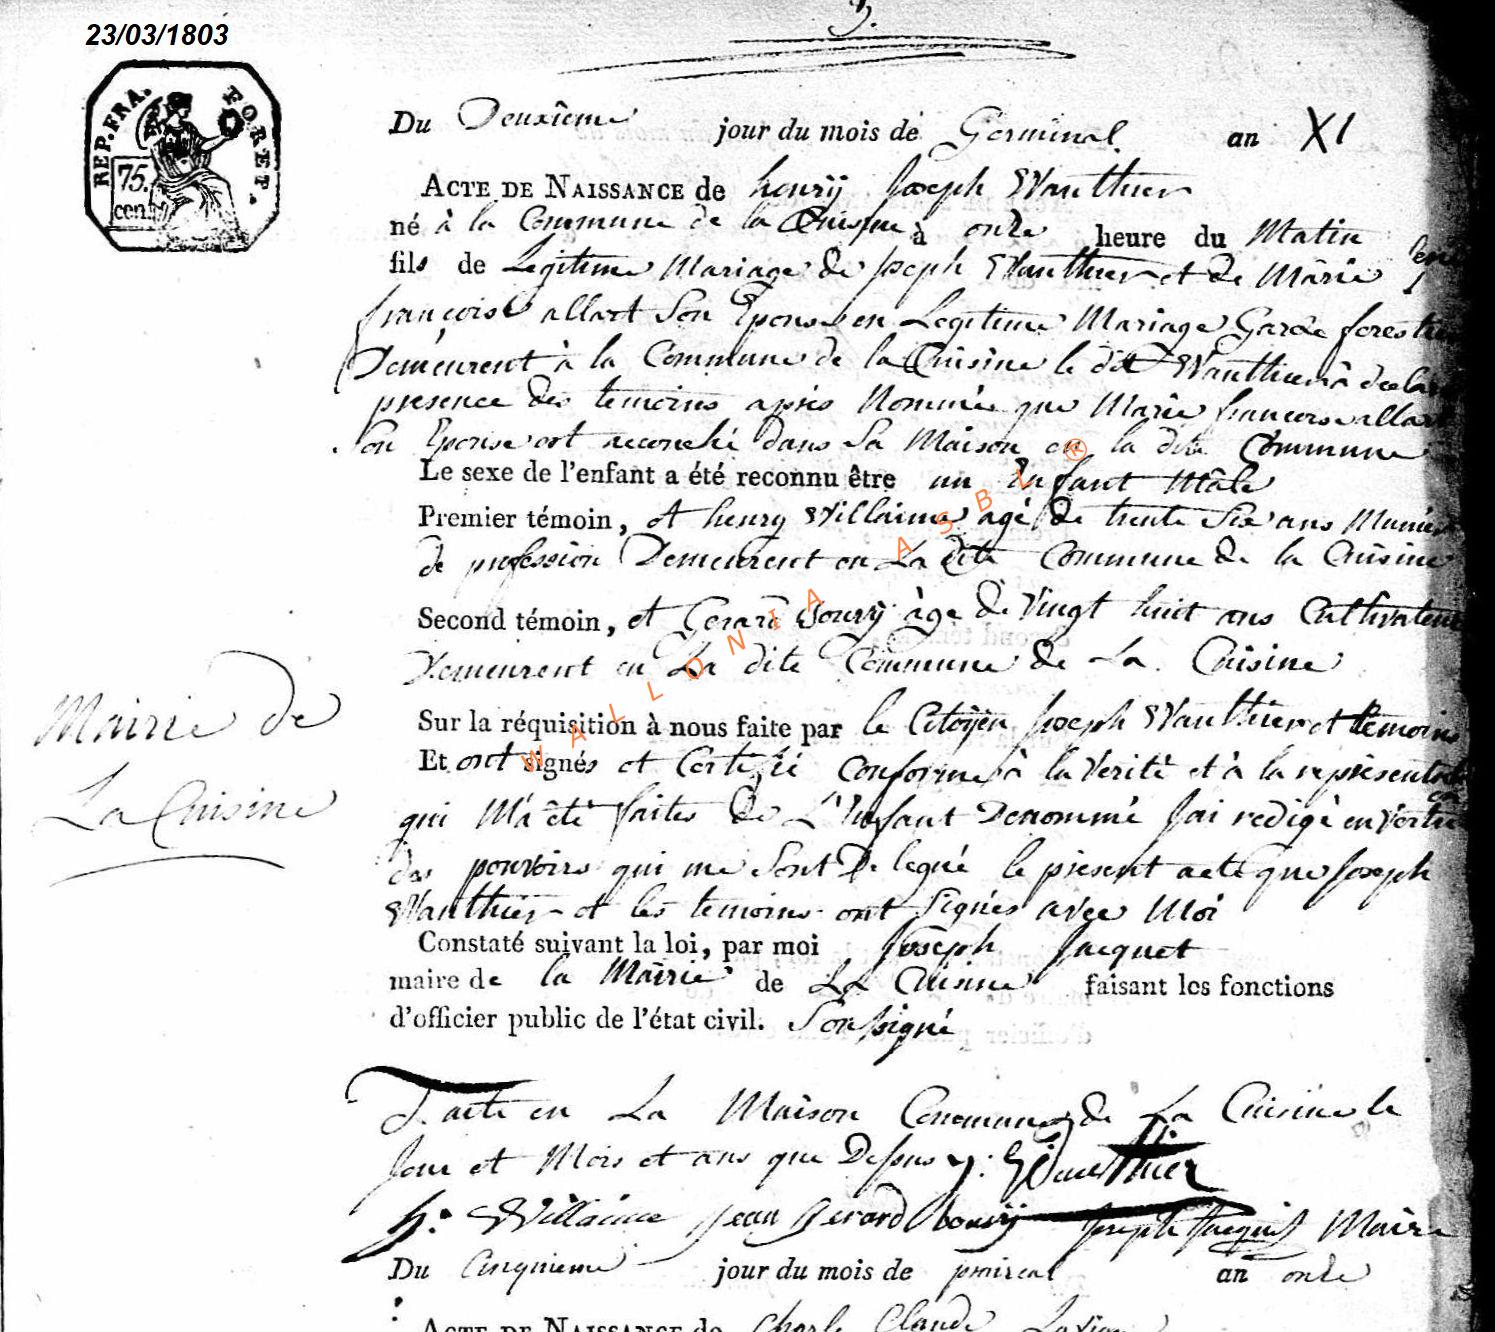 23/03/1803
3.
REP. FRA. FORET.
75.
cen.
Du Deuxième jour du mois de Germinal an XI
ACTE DE NAISSANCE de henry Joseph Wauthier
né à la Commune de la Cuisine à onze heure du Matin
fils de Legitime Mariage de Joseph Wauthier et de Marie
françoise allart Son Epouse en Legitime Mariage Garde forestier
Demeurent à la Commune de la Cuisine le dit Wauthier à
presence des temoins après Nommée que Marie francoise allart
Son Epouse est accouché dans Sa Maison en la dite Commune
Le sexe de l'enfant a été reconnu être un Enfant Mâle
Premier témoin, et henry Willaime agé de trente Six ans
de profession Demeurent en La dite Commune de la Cuisine
Second témoin, et Gerard Bouvy àge de Vingt huit ans Cultivateur
Demeurent en La dite Commune de La Cuisine
Mairie de
La Cuisine
Sur la réquisition à nous faite par le Citoÿen Joseph Wauthier et temoins
Et ont signés et Certifié Conforme à la Verité et à la représentation
qui M'a été faites de L'Enfant Denommé J'ai redigé en Vertu
des pouvoirs qui me Sont Delegué le présent acte que Joseph
Wauthier et les temoins ont Signés avec Moi
Constaté suivant la loi, par moi Joseph Jacquet
maire de la Mairie de La Cuisine faisant les fonctions
d'officier public de l'état civil. Soussigné
Faite en La Maison Commune de La Cuisine le
Jour et Mois et ans que Dessus J: Wauthier
h: Willaime Jean Gerard bouvy Joseph Jacquet Maire
Du Cinquieme jour du mois de prairial an onze
ACTE DE NAISSANCE de Charle Claude
WALLONIA ASBL ®